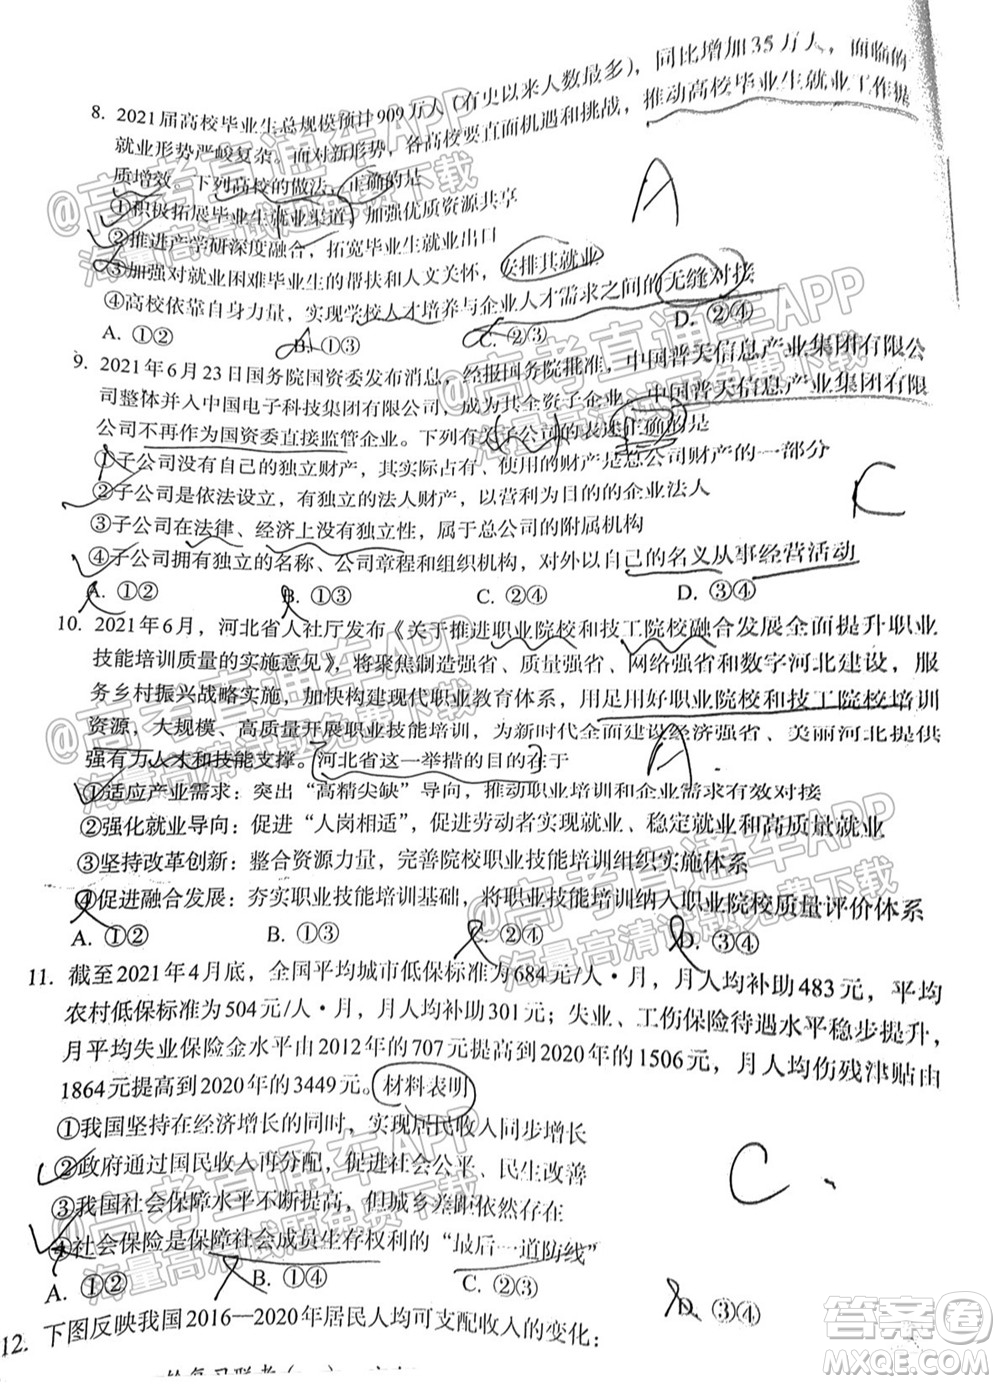 8. 2021届高校毕业生总规模预计909万人（有史以来人数最多），同比增加35万人，面临的
就业形势严峻复杂。面对新形势，各高校要直面机遇和挑战，推动高校毕业生就业工作提
质增效。下列高校的做法，正确的是
①积极拓展毕业生就业渠道，加强优质资源共享
②推进产学研深度融合，拓宽毕业生就业出口
③加强对就业困难毕业生的帮扶和人文关怀，安排其就业
④高校依靠自身力量，实现学校人才培养与企业人才需求之间的无缝对接
A. ①② B. ①③ C. ②③ D. ②④
A
9. 2021年6月23日国务院国资委发布消息，经报国务院批准，中国普天信息产业集团有限公
司整体并入中国电子科技集团有限公司，成为其全资子企业，中国普天信息产业集团有限
公司不再作为国资委直接监管企业。下列有关子公司的表述正确的是
①子公司没有自己的独立财产，其实际占有、使用的财产是总公司财产的一部分
②子公司是依法设立，有独立的法人财产，以营利为目的的企业法人
③子公司在法律、经济上没有独立性，属于总公司的附属机构
④子公司拥有独立的名称、公司章程和组织机构，对外以自己的名义从事经营活动
A. ①② B. ①③ C. ②④ D. ③④
C
10. 2021年6月，河北省人社厅发布《关于推进职业院校和技工院校融合发展全面提升职业
技能培训质量的实施意见》，将聚焦制造强省、质量强省、网络强省和数字河北建设，服
务乡村振兴战略实施，加快构建现代职业教育体系，用足用好职业院校和技工院校培训
资源，大规模、高质量开展职业技能培训，为新时代全面建设经济强省、美丽河北提供
强有力人才和技能支撑。河北省这一举措的目的在于
①适应产业需求：突出“高精尖缺”导向，推动职业培训和企业需求有效对接
②强化就业导向：促进“人岗相适”，促进劳动者实现就业、稳定就业和高质量就业
③坚持改革创新：整合资源力量，完善院校职业技能培训组织实施体系
④促进融合发展：夯实职业技能培训基础，将职业技能培训纳入职业院校质量评价体系
A. ①② B. ①③ C. ②④ D. ③④
A.
11. 截至2021年4月底，全国平均城市低保标准为684元/人·月，月人均补助483元，平均
农村低保标准为504元/人·月，月人均补助301元；失业、工伤保险待遇水平稳步提升，
月平均失业保险金水平由2012年的707元提高到2020年的1506元，月人均伤残津贴由
1864元提高到2020年的3449元。材料表明
①我国坚持在经济增长的同时，实现居民收入同步增长
②政府通过国民收入再分配，促进社会公平、民生改善
③我国社会保障水平不断提高，但城乡差距依然存在
④社会保险是保障社会成员生存权利的“最后一道防线”
A. ①② B. ①④ C. ②③ D. ③④
C.
12. 下图反映我国2016—2020年居民人均可支配收入的变化：
@高考直通车APP
海量高清试题免费下载
@高考直通车APP
海量高清试题免费下载
@高考直通车APP
海量高清试题免费下载
@高考直通车APP
海量高清试题免费下载
@高考直通车APP
海量高清试题免费下载
答案圈
MXQE.COM